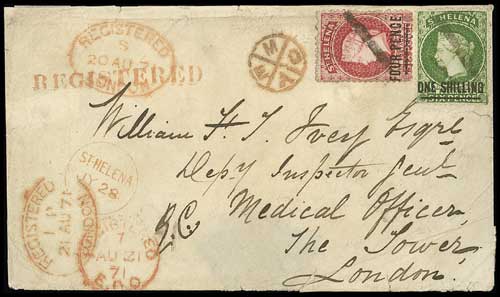 REGISTERED
20 AU 71
LONDON
REGISTERED
ST HELENA
SIXPENCE
FOUR PENCE
ST HELENA
ONE SHILLING
SIX PENCE
William
Depy Inspector Genl
Medical Officer,
The Tower,
London.
ST HELENA
JY 28
REGISTERED
21 AU 71
LONDON
7
AU 21
71